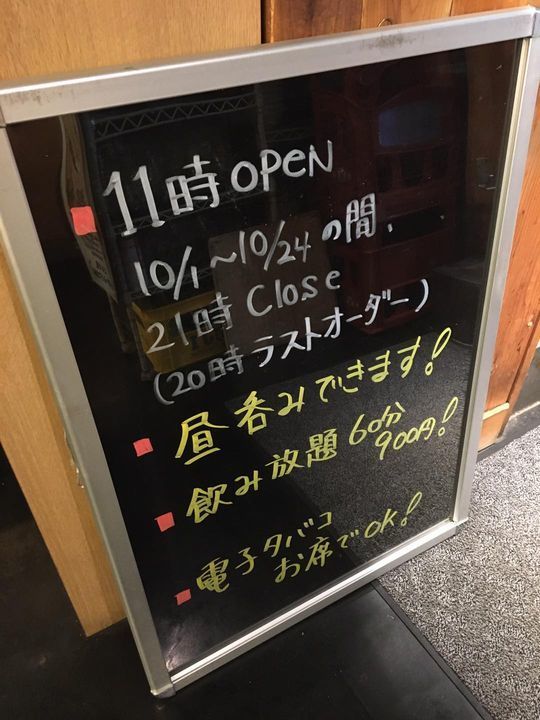 11時 OPEN
10/1～10/24の間、
21時 Close
(20時 ラストオーダー)
昼呑みできます!
飲み放題 60分
900円!
電子タバコ
お席でOK!